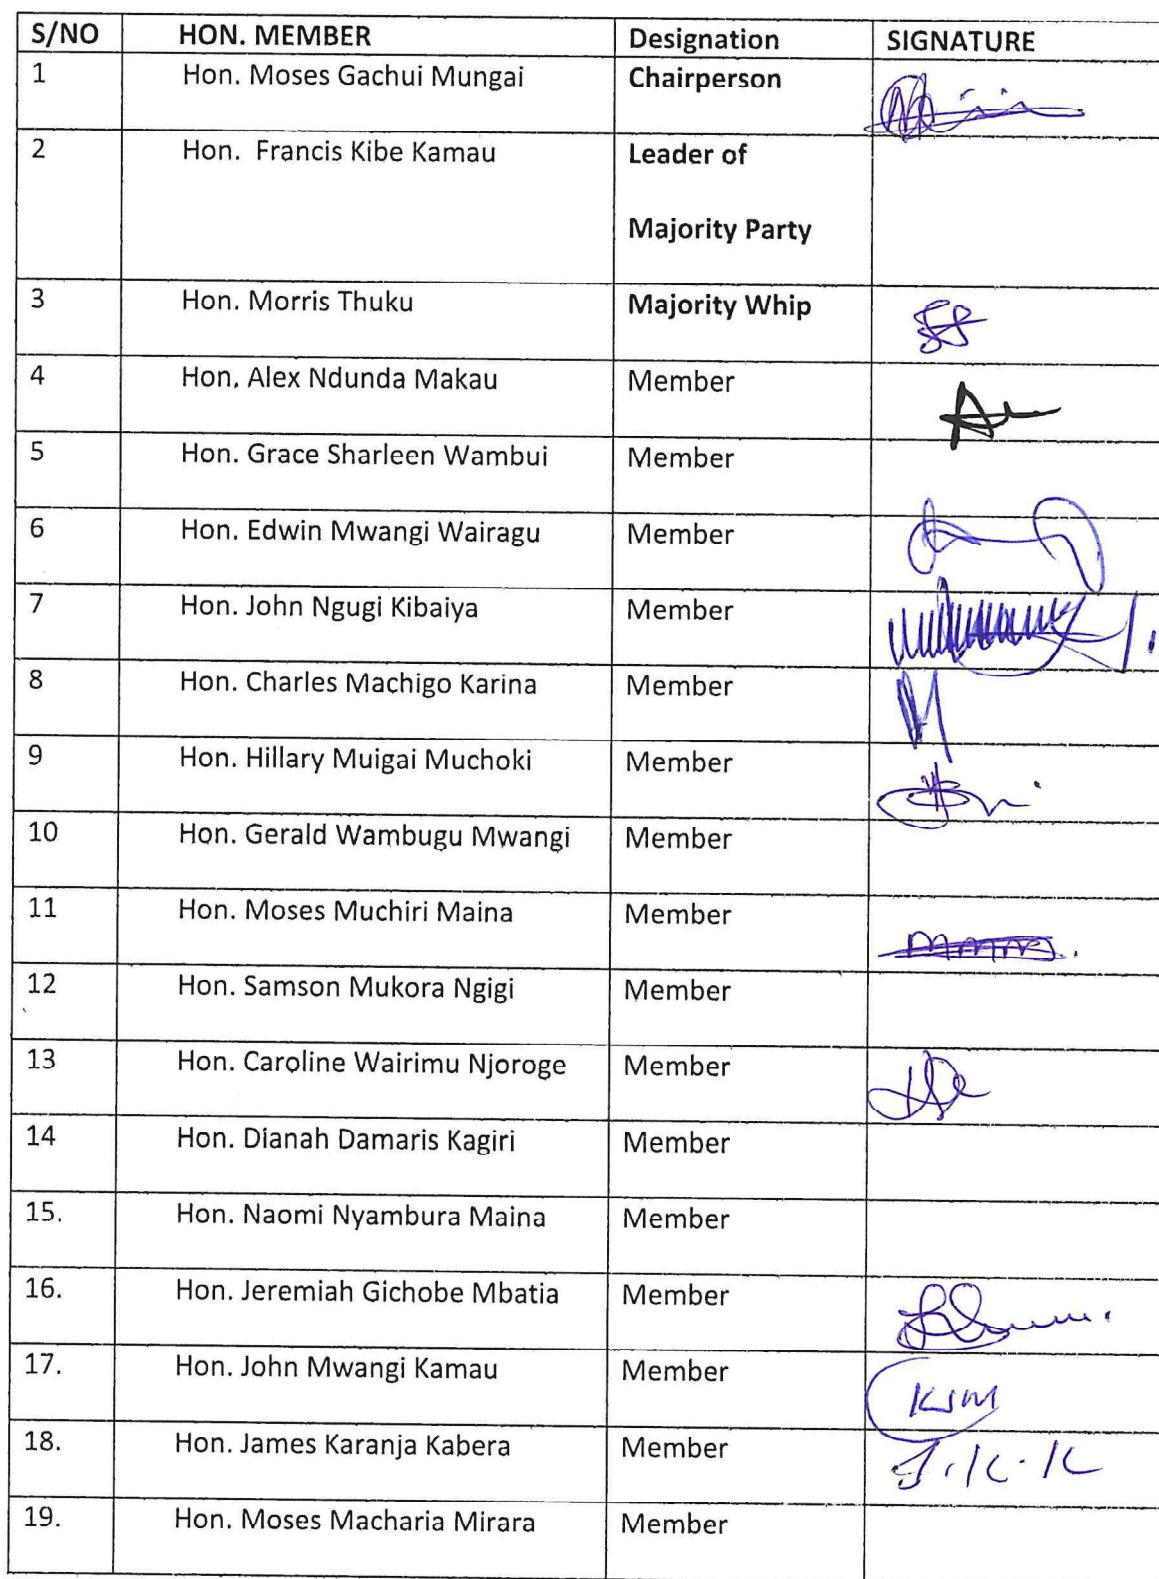 S/NO HON. MEMBER Designation SIGNATURE
1 Hon. Moses Gachui Mungai Chairperson
2 Hon. Francis Kibe Kamau Leader of
Majority Party
3 Hon. Morris Thuku Majority Whip
4 Hon. Alex Ndunda Makau Member
5 Hon. Grace Sharleen Wambui Member
6 Hon. Edwin Mwangi Wairagu Member
7 Hon. John Ngugi Kibaiya Member
8 Hon. Charles Machigo Karina Member
9 Hon. Hillary Muigai Muchoki Member
10 Hon. Gerald Wambugu Mwangi Member
11 Hon. Moses Muchiri Maina Member
12 Hon. Samson Mukora Ngigi Member
13 Hon. Caroline Wairimu Njoroge Member
14 Hon. Dianah Damaris Kagiri Member
15. Hon. Naomi Nyambura Maina Member
16. Hon. Jeremiah Gichobe Mbatia Member
17. Hon. John Mwangi Kamau Member KJM
18. Hon. James Karanja Kabera Member J.K.K
19. Hon. Moses Macharia Mirara Member